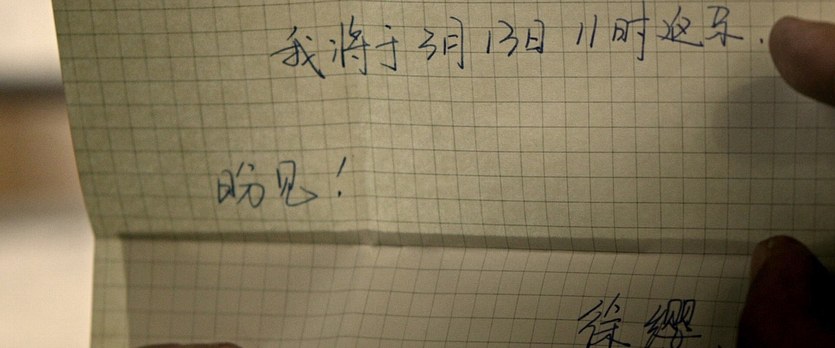 我将于3月13日11时返京.
盼见!
徐缨